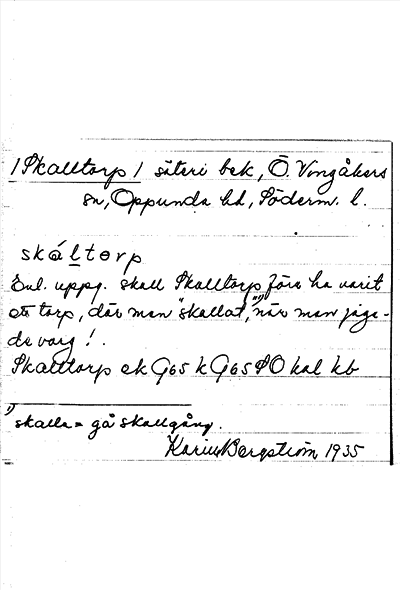 /Skalltorp/ säteri bek, Ö. Vingåkers
sn, Oppunda hd, Söderm. l.
skáltorp
Enl. uppg. skall Skalltorp förr ha varit
ett torp, där man "skallat"¹⁾, när man jaga-
de varg!
Skalltorp ek G65 k G65 SO kal kb
¹⁾ skalla = gå skallgång.
Karin Bergström 1935